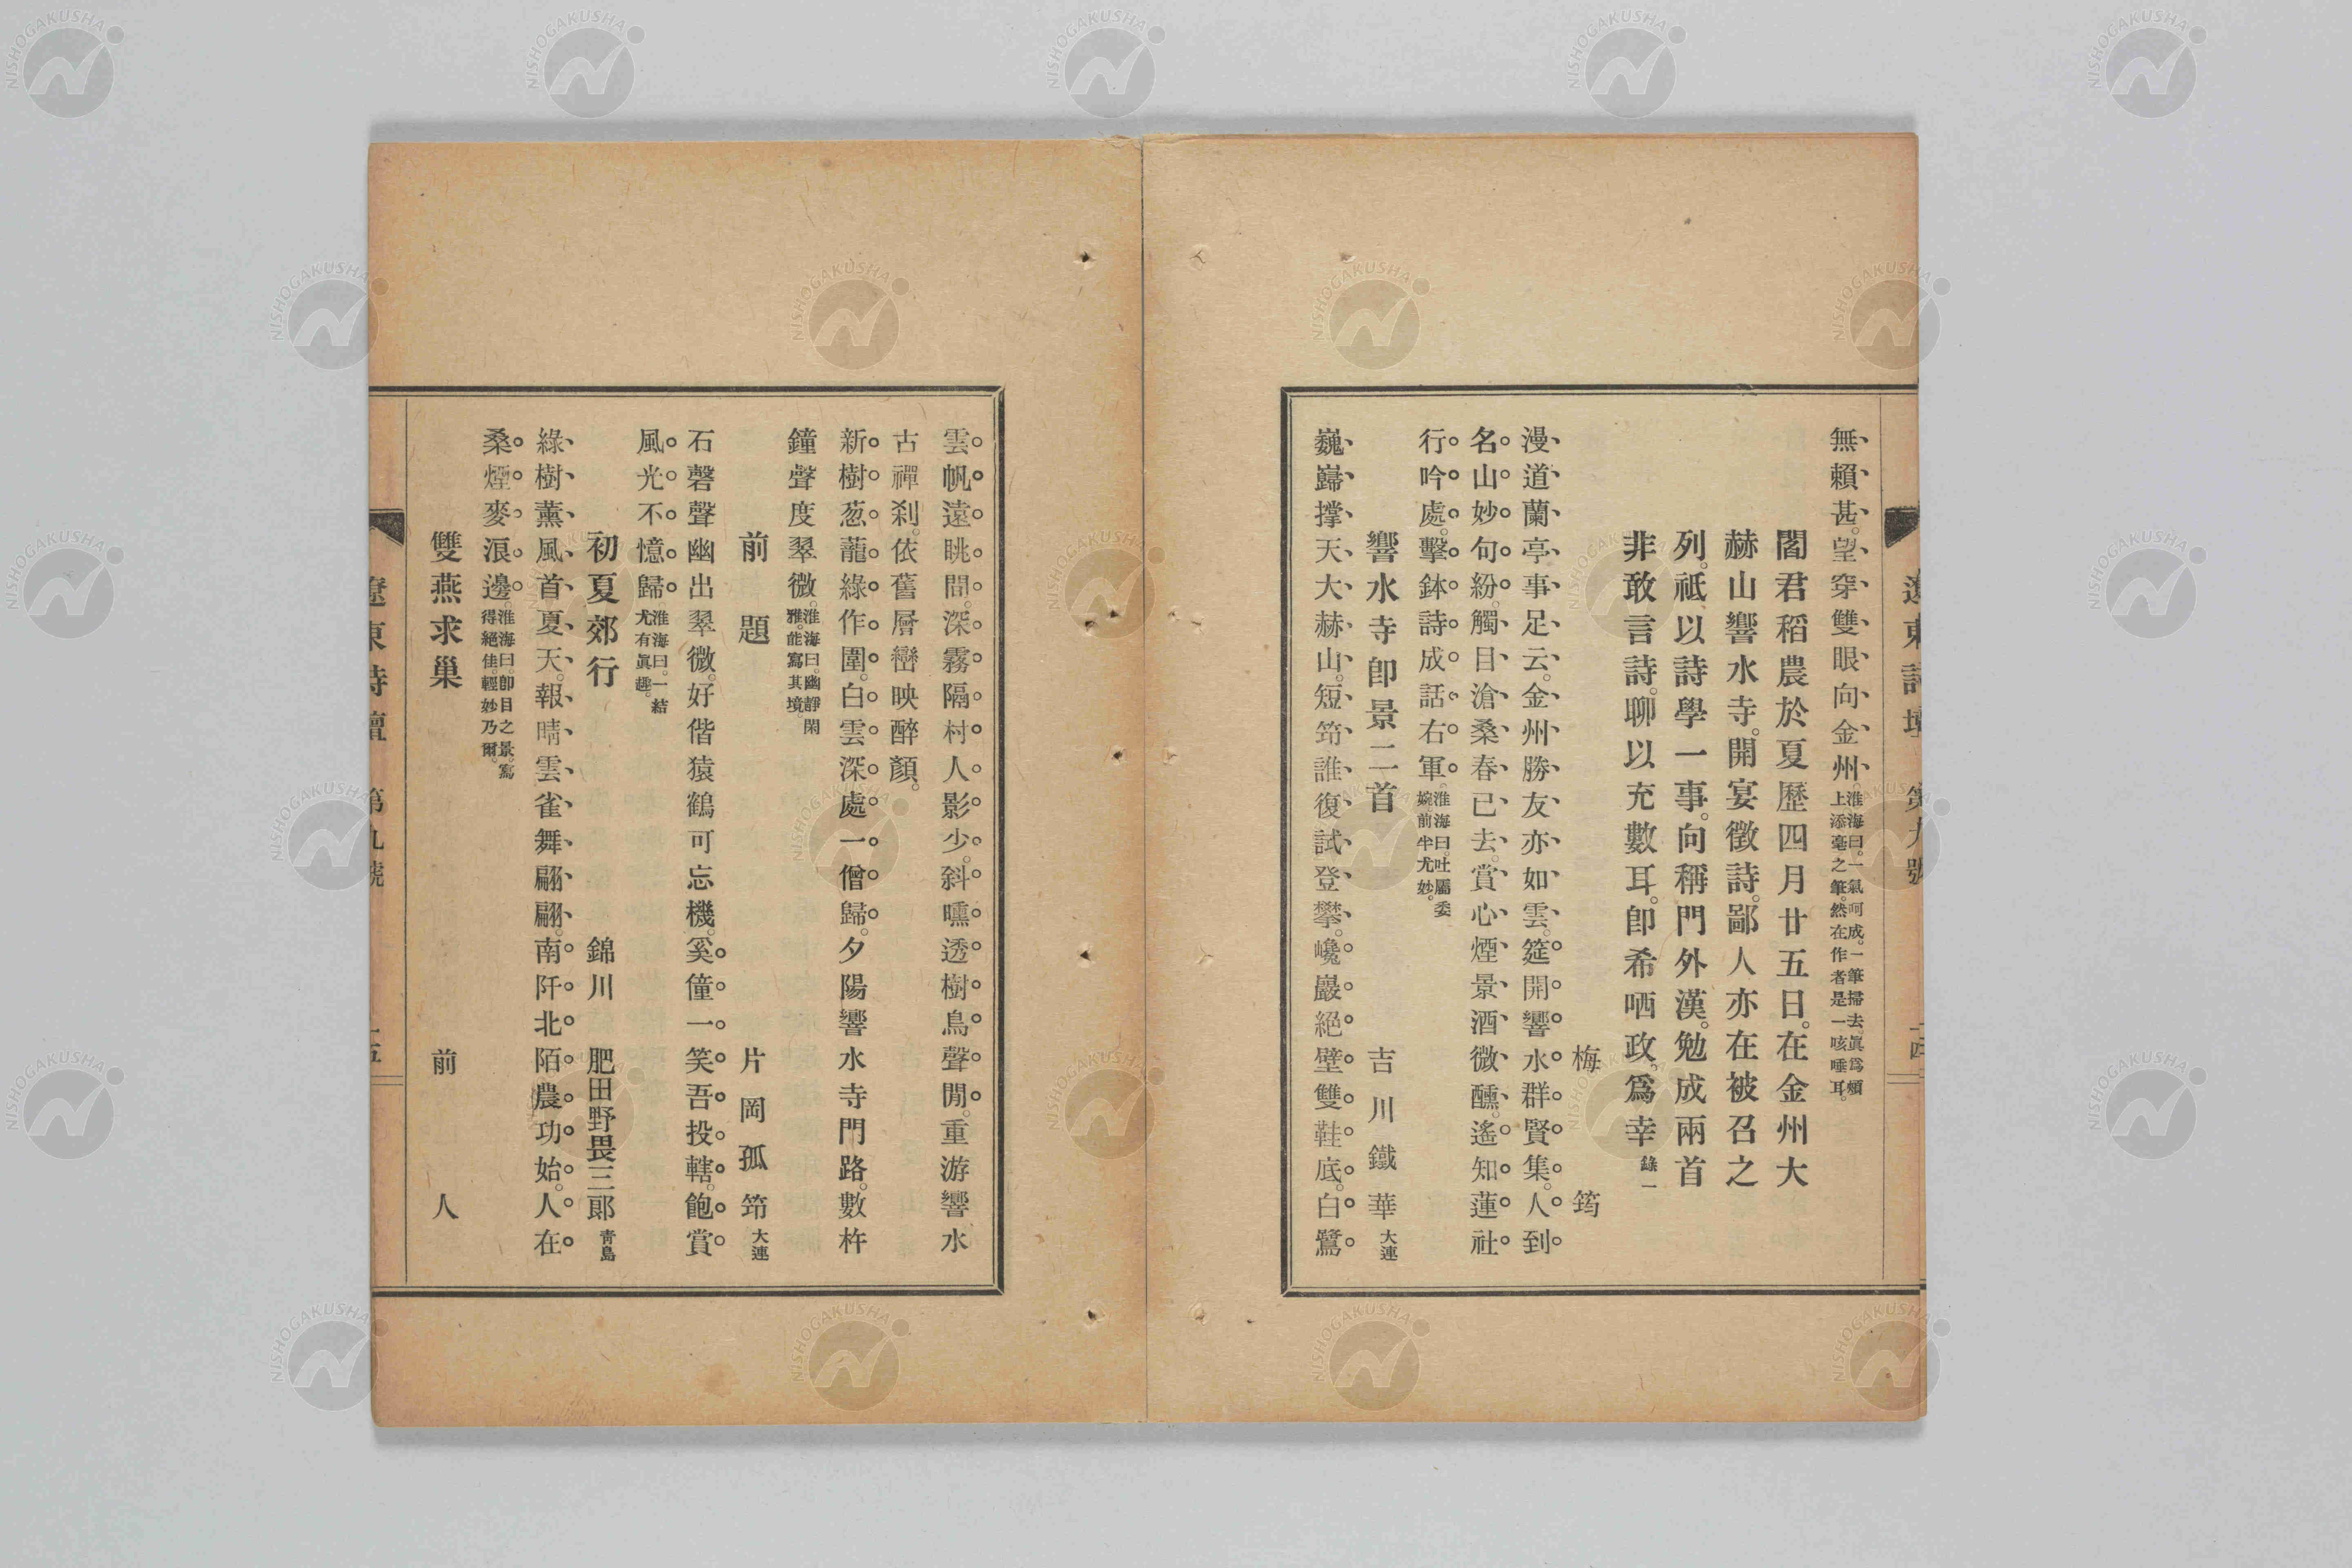 遼東詩壇 第九號
無賴甚。望穿雙眼向金州。淮海曰。一氣呵成。一筆掃去。眞爲頰上添毫之筆。然在作者是一咳唾耳。
閻君稻農於夏歷四月廿五日。在金州大
赫山響水寺。開宴徵詩。鄙人亦在被召之
列。祗以詩學一事。向稱門外漢。勉成兩首
非敢言詩。聊以充數耳。卽希哂政。爲幸 錄一
梅 筠
漫道蘭亭事足云。金州勝友亦如雲。筵開響水群賢集。人到
名山妙句紛。觸目滄桑春已去。賞心煙景酒微醺。遙知蓮社
行吟處。擊鉢詩成話右軍。淮海曰。吐屬委婉。前半尤妙。
響水寺卽景二首 吉川鐵華 大連
巍巋撑天大赫山。短笻誰復試登攀。巉巖絕壁雙鞋底。白鷺
雲帆遠眺間。深霧隔村人影少。斜曛透樹鳥聲閒。重游響水
古禪刹。依舊層巒映醉顏。
新樹葱蘢綠作圍。白雲深處一僧歸。夕陽響水寺門路。數杵
鐘聲度翠微。淮海曰。幽靜閑雅。能寫其境。
前題 片岡孤笻 大連
石磬聲幽出翠微。好偕猿鶴可忘機。奚僮一笑吾投轄。飽賞
風光不憶歸。淮海曰。一結尤有眞趣。
初夏郊行 錦川 肥田野畏三郞 青島
綠樹薰風首夏天。報晴雲雀舞翩翩。南阡北陌農功始。人在
桑煙麥浪邊。淮海曰。卽目之景。寫得絕佳。輕妙乃爾。
雙燕求巢 前人
遼東詩壇 第九號